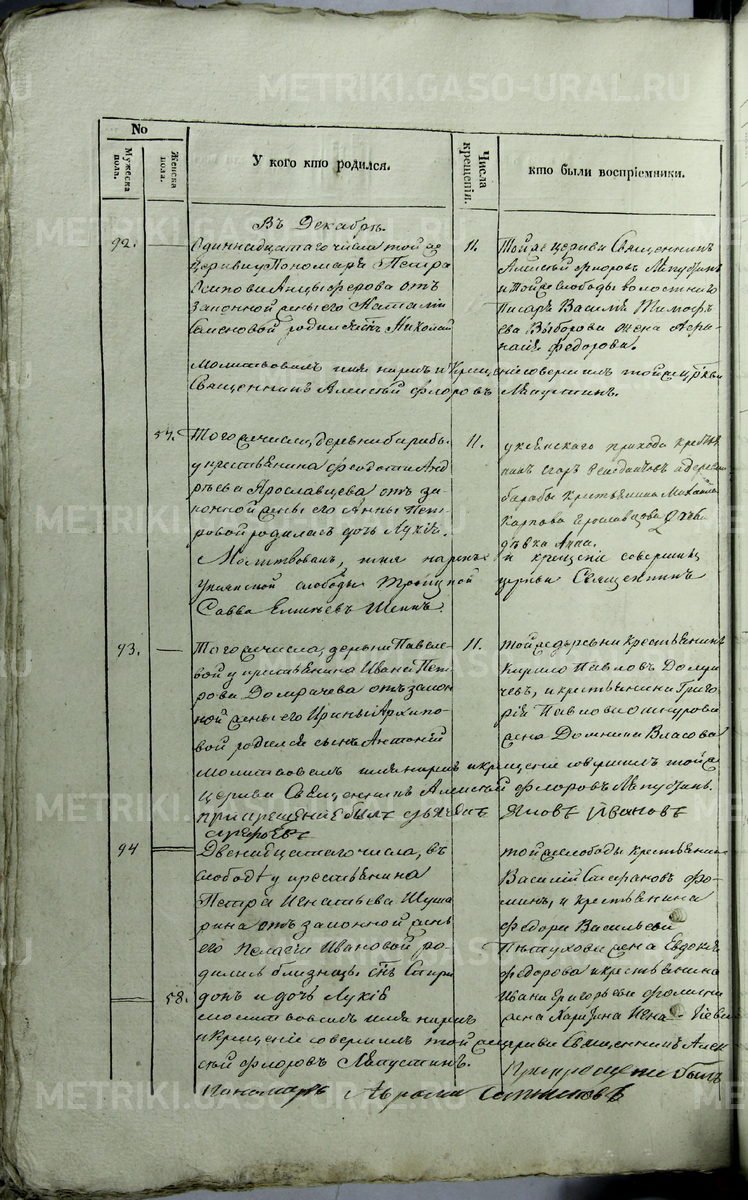 METRIKI.GASO-URAL.RU
No
Мужеска пола.
Женска пола.
У кого кто родился.
Числа крещенія.
кто были воспріемники.
Въ Декабрѣ.
92.
Одиннадцатаго числа той же
церкви у Пономаря Петра
Осипова Анцыферова отъ
законной жены его Наталіи
Семеновой родился сынъ Николай
11.
Той же церкви Священникъ
Алексѣй Флоровъ Ляпустинъ
и той же слободы волостнаго
Писаря Василья Тимофѣ
ева Выборова жена
Федорова.
Молитвовалъ имя нарекъ и Крещеніе совершилъ той же Церкви
Священникъ Алексѣй Флоровъ Ляпустинъ.
57.
Того же числа, деревни Барабы
у крестьянина Федота Анд
рѣева Ярославцева отъ за
конной жены его Анны Пет
ровой родилась дочь Лукія.
11.
прихода
Егоръ деревни
Барабы Крестьянина Михаила
Карпова Ярославцова
дѣвка Анна.
Молитвовалъ, имя нарекъ и крещеніе совершилъ
слободы Троицкой церкви Священникъ
Савва
93.
Того же числа, деревни Павле
вой у крестьянина Ивана Пет
рова Домрачева отъ закон
ной жены его Ирины Архипо
вой родился сынъ Антоній
11.
той же деревни крестьянинъ
Кирило Павловъ Домра
чевъ, и крестьянина Григо
рія Павлова
жена Домнина Власова
Молитвовалъ имя нарекъ и крещеніе совершилъ той же
Церкви Священникъ Алексѣй Флоровъ Ляпустинъ.
при крещеніе былъ дьячекъ Яковъ Ивановъ
94
Двенадцатаго числа, въ
слободѣ у крестьянина
Петра Игнатьева Шуша
рина отъ законной жены
его Пелагіи Ивановой ро
дились близнецы сынъ Спири
58.
донъ и дочь Лукія
той же слободы крестьянинъ
Василій Стефановъ Фо
минъ, и крестьянина
Федора Васильева
Пѣтухова жена Евдокія
Федорова и крестьянина
Ивана Григорьева Фомина
жена
молитвовалъ имя нарекъ
и Крещеніе совершилъ той же церкви Священникъ Алек
сѣй Флоровъ Ляпустинъ. При крещеніе былъ
Пономарь